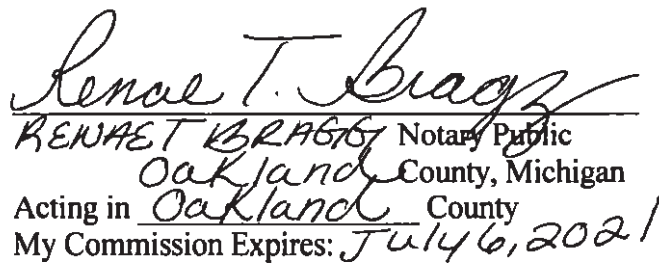 Renae T. Bragg
RENAE T BRAGG Notary Public
Oakland County, Michigan
Acting in Oakland County
My Commission Expires: July 6, 2021